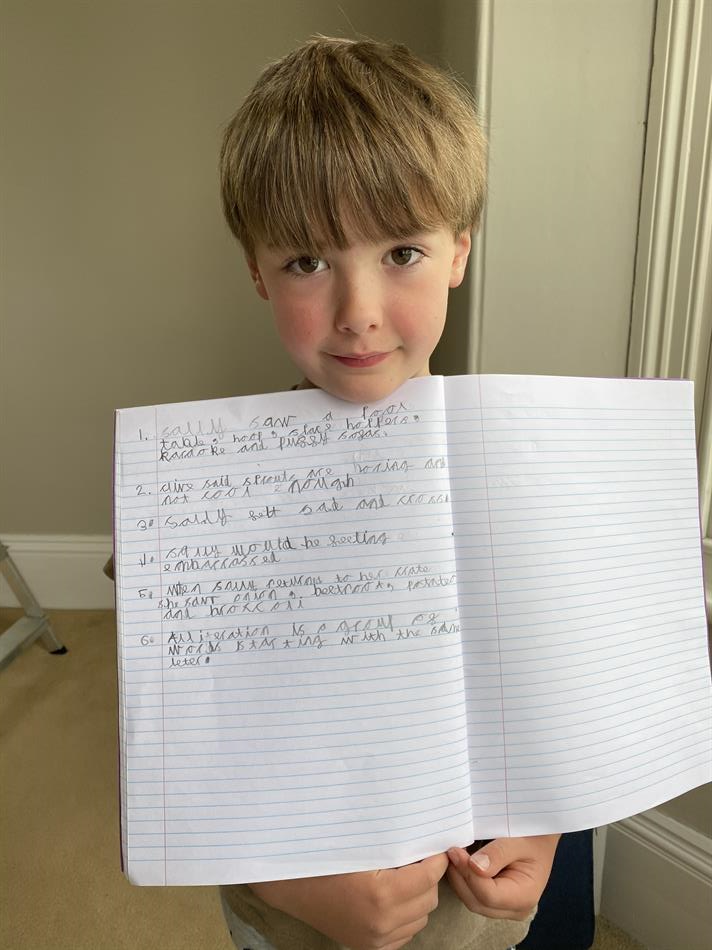 1. sally saw a pool
table, hoop, space hoppers,
karaoke and fussy sofas.
2. clive said sprouts are boring and
not cool enough
3. Sally felt sad and cross
4. sally would be feeling
embarrassed
5. When sally returns to her crate
she saw onion, beetroot,
and broccoli
6. Alliteration is a group of
words starting with the same
leter.